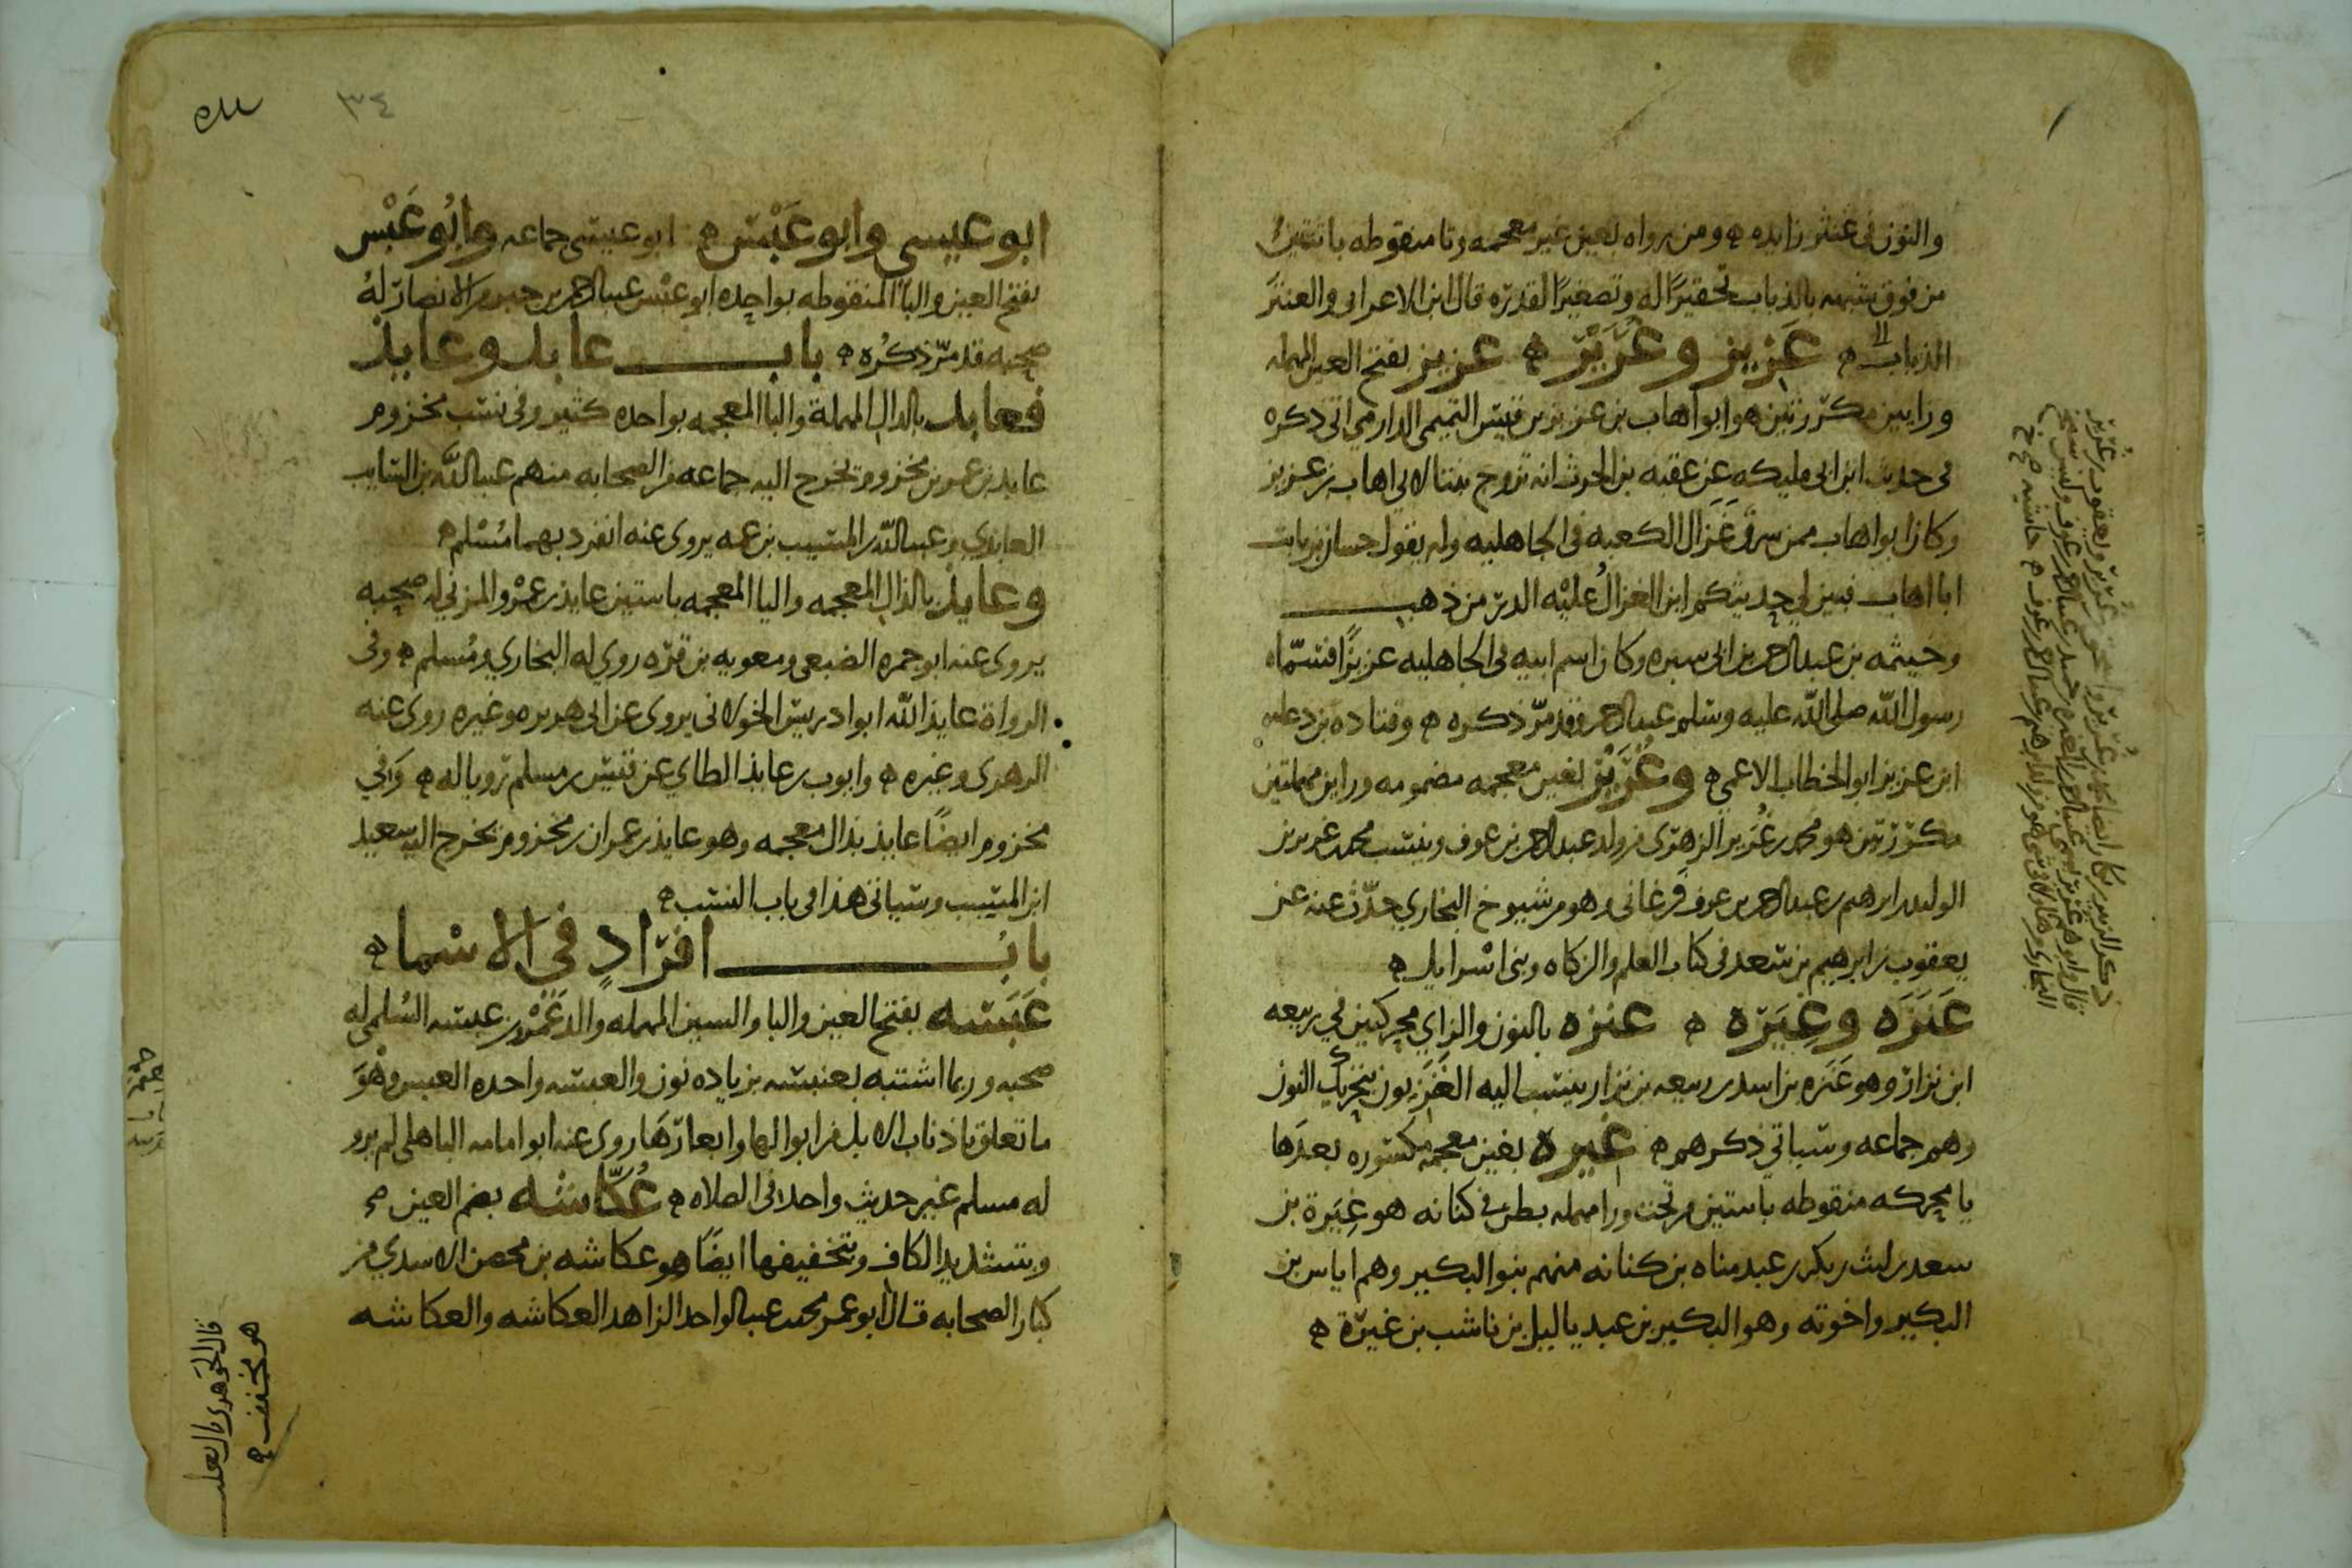 والنون في عنثر زايده ه ومن رواه بعين غير معجمه وتا منقوطه باثنتين
من فوق شبهه بالذباب تحقيرًا له وتصغيرًا لقدره قال ابن الاعرابي والعنتر
الذباب ه عَزِيز وغُرَيْر ه عزيز بفتح العين المهمله
وزايين مكررتين هو ابو اهاب بن عزيز بن قيس التميمي الدارمي اتى ذكره
في حديث ابن ابي مليكه عن عقبه بن الحرث انه تزوج بنتا لابي اهاب بن عزيز
وكان ابو اهاب ممن سرق غزال الكعبه في الجاهليه وله يقول حسان بن ثابت
ابا اهاب فبين لي حديثكم اين الغزالُ عليْه الدر من ذهب
وخيثمه بن عبد الرحمن بن ابي سبره وكان اسم ابيه في الجاهليه عزيزًا فسمّاه
رسول الله صلى الله عليه وسلم عبد الرحمن وقد مرّ ذكره ه وقتاده بن دعامه
ابن عزيز ابو الخطاب الاعمي ه وغُرَيْر بغين معجمه مضمومه وراين مهملتين
مكررتين هو محمد بن غُرَير الزهري من ولد عبد الرحمن بن عوف وينسب محمد بن غرير بن
الوليد بن ابرهيم بن عبد الرحمن بن عوف فرغاني وهو من شيوخ البخاري حدّث عنه عن
يعقوب بن ابرهيم بن سعد في كتاب العلم والزكاه وبني اسْرايل ه
عَنَزَه وغِيَرَه ه عنزه بالنون والزاي محركتين في ربيعه
ابن نزار وهو عَنَزه بن اسد بن ربيعه بن نزار ينتسب اليه العَنَزِيون بتحريك النون
وهم جماعه وسياتي ذكرهم ه غيره بغين معجمه مكسوره بعدَها
يا محركه منقوطه باثنتين من تحت ورا مهمله بطن في كنانه هو غِيَرة بن
سعد بن ليث بن بكر بن عبد مناه بن كنانه منهم بنو البكير وهم اياس بن
البكير واخوته وهو البكير بن عبد ياليل بن ناشب بن غيَرة ه
٣٤
ابو عيسى وابو عَبْس ه ابو عيسى جماعه وابُو عَبْس
بفتح العين والبا المنقوطه بواحده ابو عبْس عبد الرحمن بن جبر من الانصار لهُ
صحبه قد مرّ ذكره ه باب عابد وعايذ
فعابد بالدال المهملة والبا المعجمه بواحده كثير وفي نسب مخزوم
عابد بن عمر بن مخزوم وتخرج اليه جماعه من الصحابه منهم عبد الله بن السايب
العابدي وعبد الله بن المسيب بن عمه يروى عنه انفرد بهما مُسْلم ه
وعايذ بالذال المعجمه واليا المعجمه باثنتين عايذ بن عمْرو المزني له صحبه
يروي عنه ابو جمره الضبعي ومعويه بن قرّه روي له البخاري ومُسلم ه وفي
الرواة عايذ الله ابو ادريس الخولاني يروي عن ابي هريره وغيره روى عنه
الزهري وغيره ه وايوب بن عايذ الطاي عن قيس بن مسلم رويا له ه وَفي
مخزوم ايضًا عايذ بذال معجمه وهو عايذ بن عمران بن مخزوم يخرج اليه سعيد
ابن المسيب وسياتي هذا في باب النسب ه
بابُ افرَادٍ في الاسْماء ه
عَبَسَه بفتح العين والبا والسين المهمله والد عَمْرو بن عبسه السُلمي له
صحبه وربما اشتبه بعنبسه بزياده نون والعبسه واحده العبس وهْوَ
ما تعلق باذناب الابل من ابوالها وابعارهَا روى عنه ابو امامه الباهلي لم يرو
له مسلم غير حديث واحد في الصلاه ه عُكّاشْه بضم العين
وبتشديد الكاف وتخفيفها ايضًا هو عكاشه بن محصن الاسدي من
كبار الصحابه قال ابو عمر محمد بن عبد الواحد الزاهد العكاشه والعكاشه
قال الجوهري قال ثعلب
هو مخفف ه